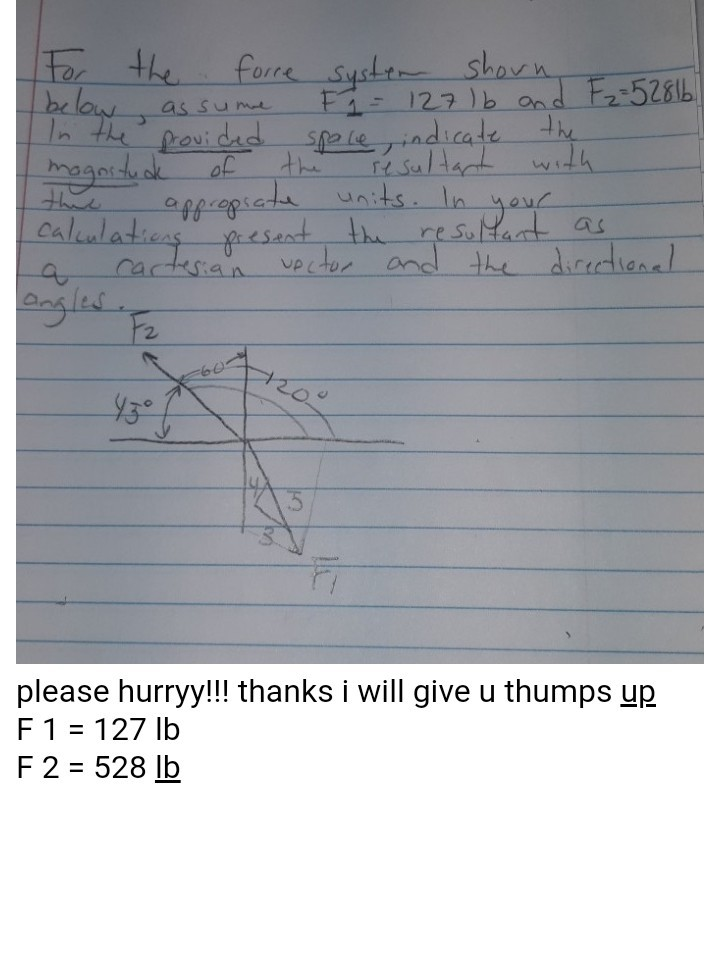 For the force system shown
below, assume F1 = 127 lb and F2=528lb
In the provided space, indicate the
magnitude of the resultant with
the appropriate units. In your
calculations present the resultant as
a cartesian vector and the directional
angles.
F2
60°
120°
45°
4
5
3
F1
please hurryy!!! thanks i will give u thumps up
F 1 = 127 lb
F 2 = 528 lb